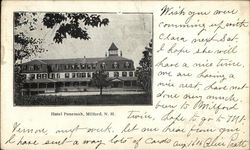 Hotel Ponemah, Milford, N. H.
Wish you were
coming up with
Clara next Sat.
I hope she will
have a nice time
we are having a
nice rest. Have not
done very much
been to Milford
twice, hope to go to Mt
Vernon next week, let me hear from you
I have sent a way lots of cards Aug